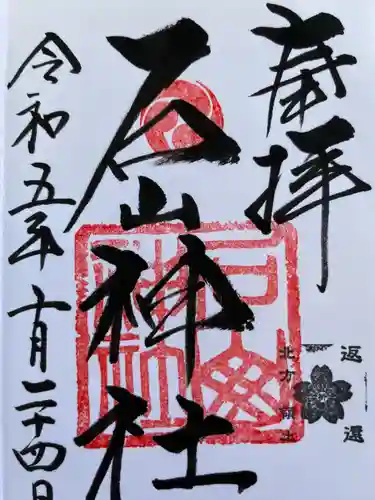 奉拝
返還
北方領土
石山神社
令和五年十月二十四日